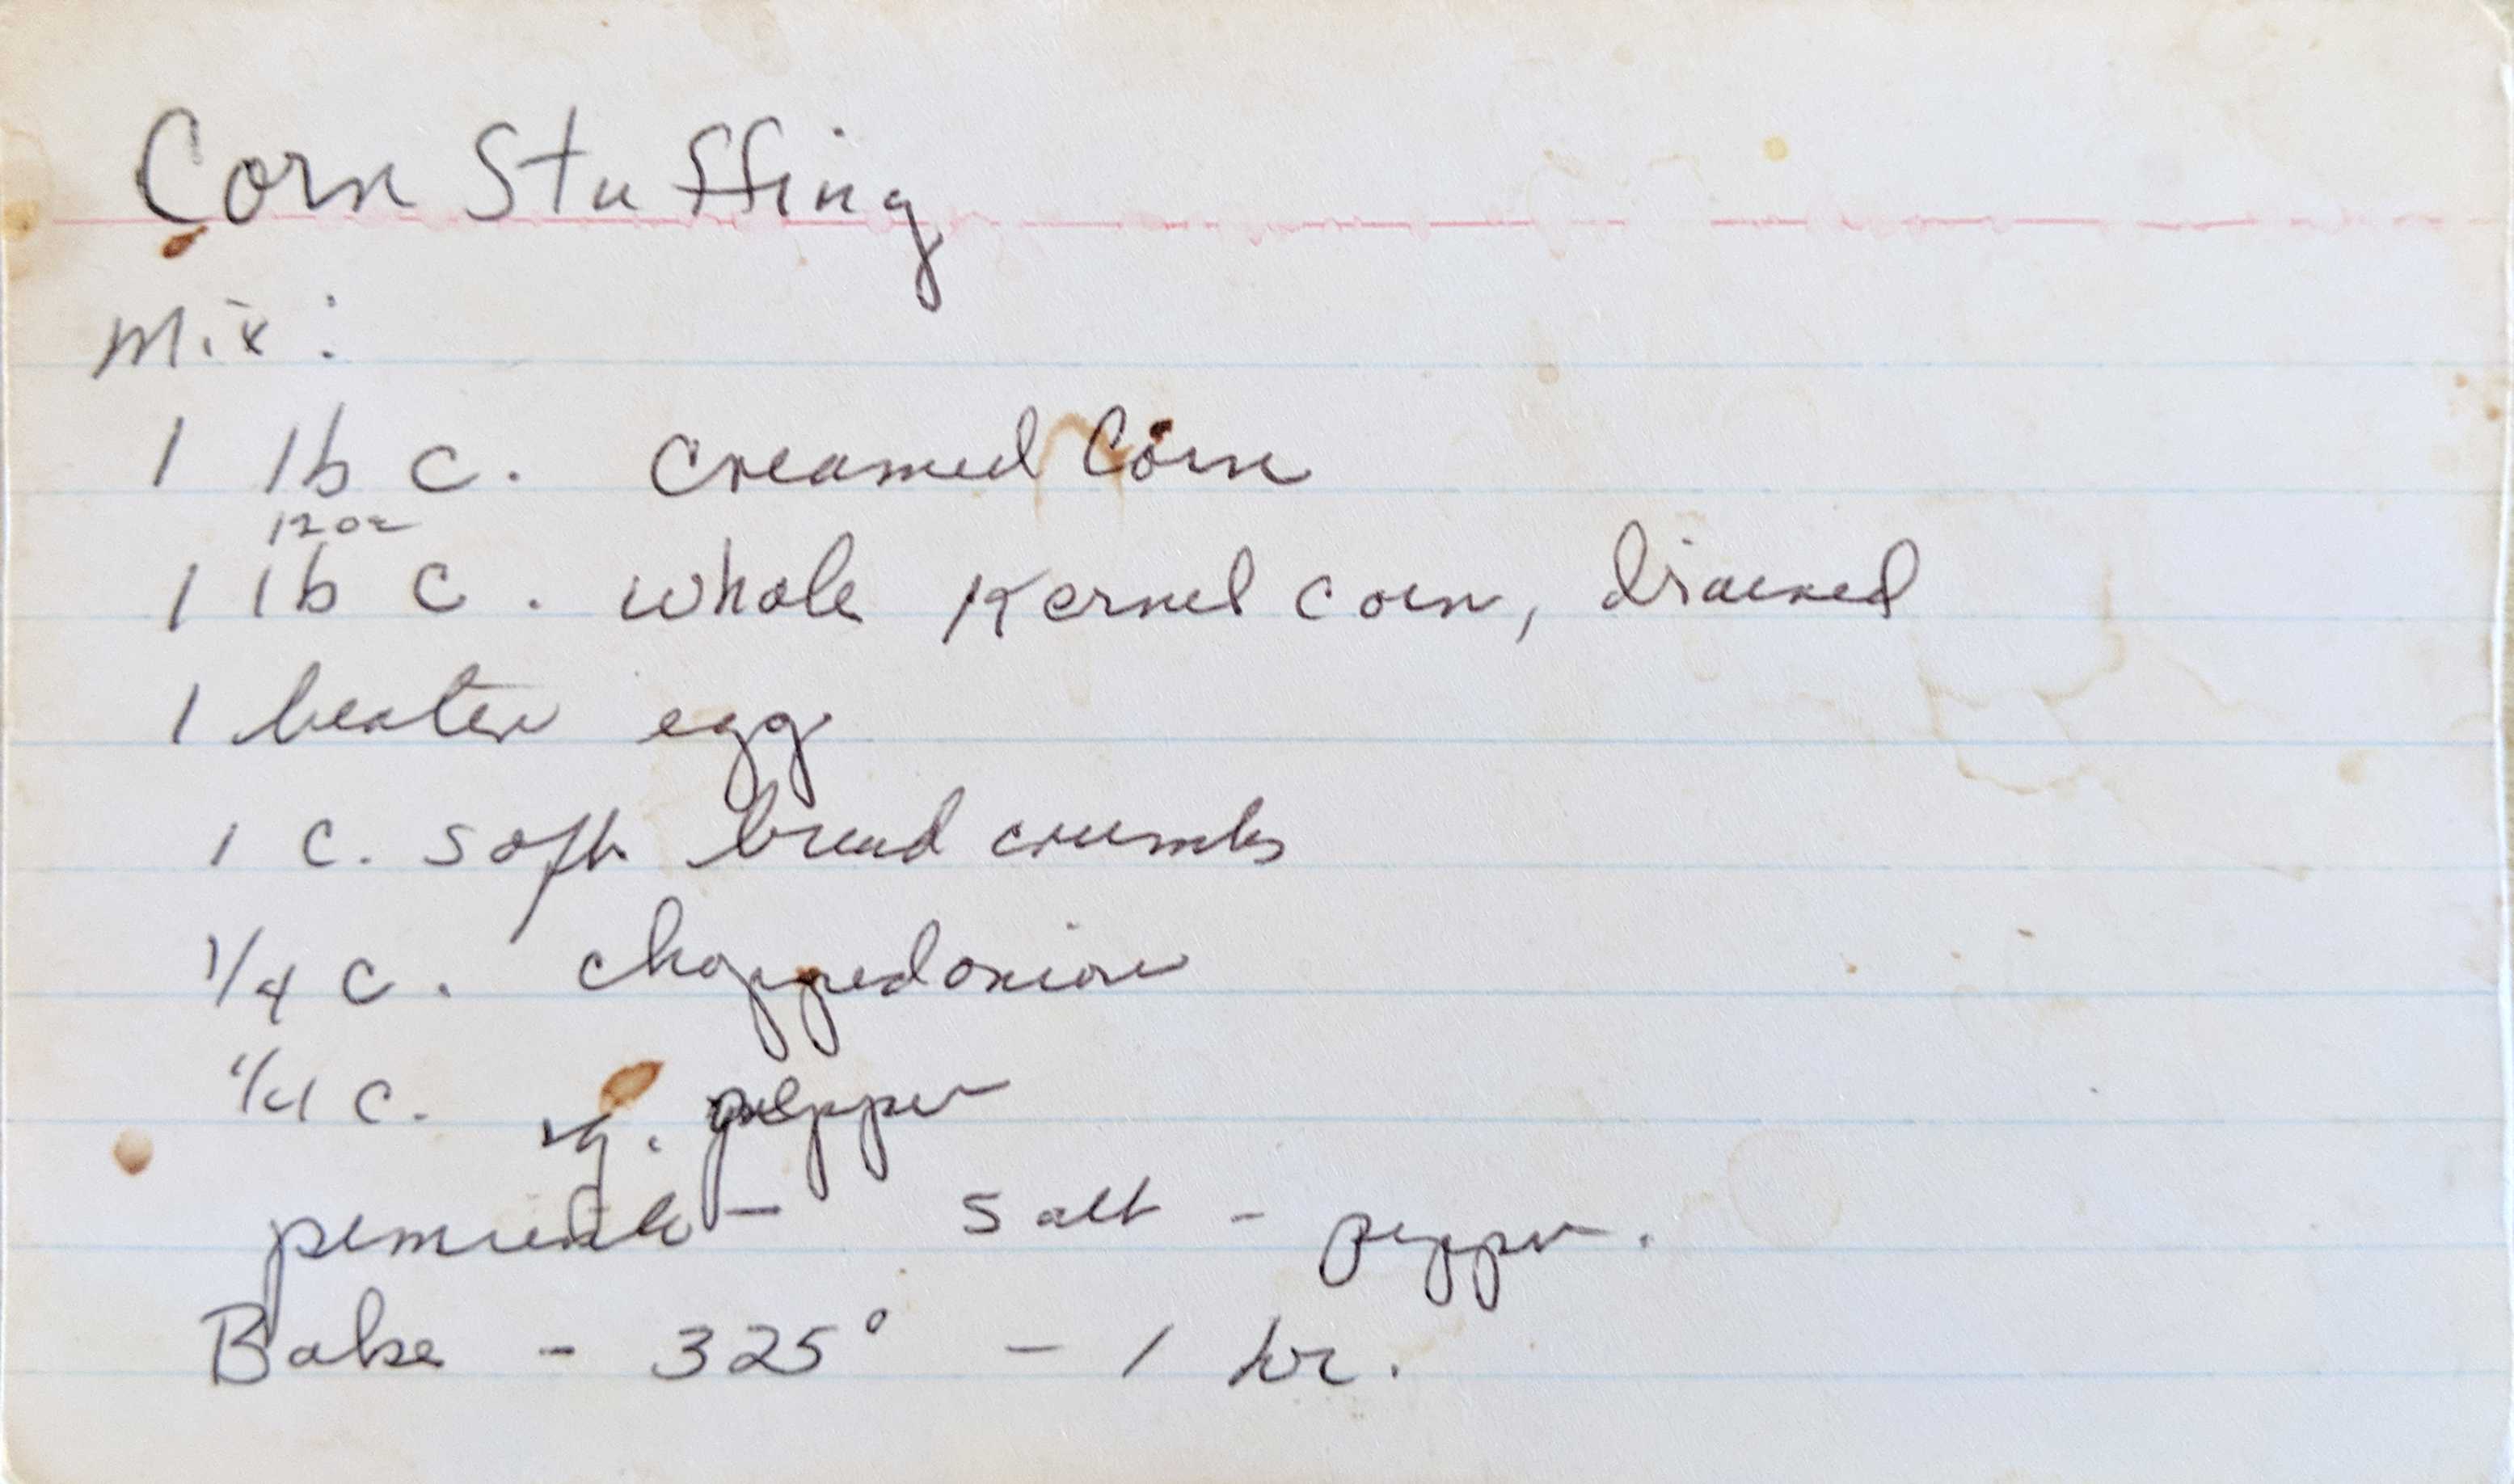 Corn Stuffing
Mix:
1 lb c. Creamed Corn
12 oz
1 lb c. whole Kernel corn, drained
1 beaten egg
1 c. soft bread crumbs
1/4 c. chopped onion
1/4 c. pepper
pimiento - salt - pepper.
Bake - 325° - 1 hr.